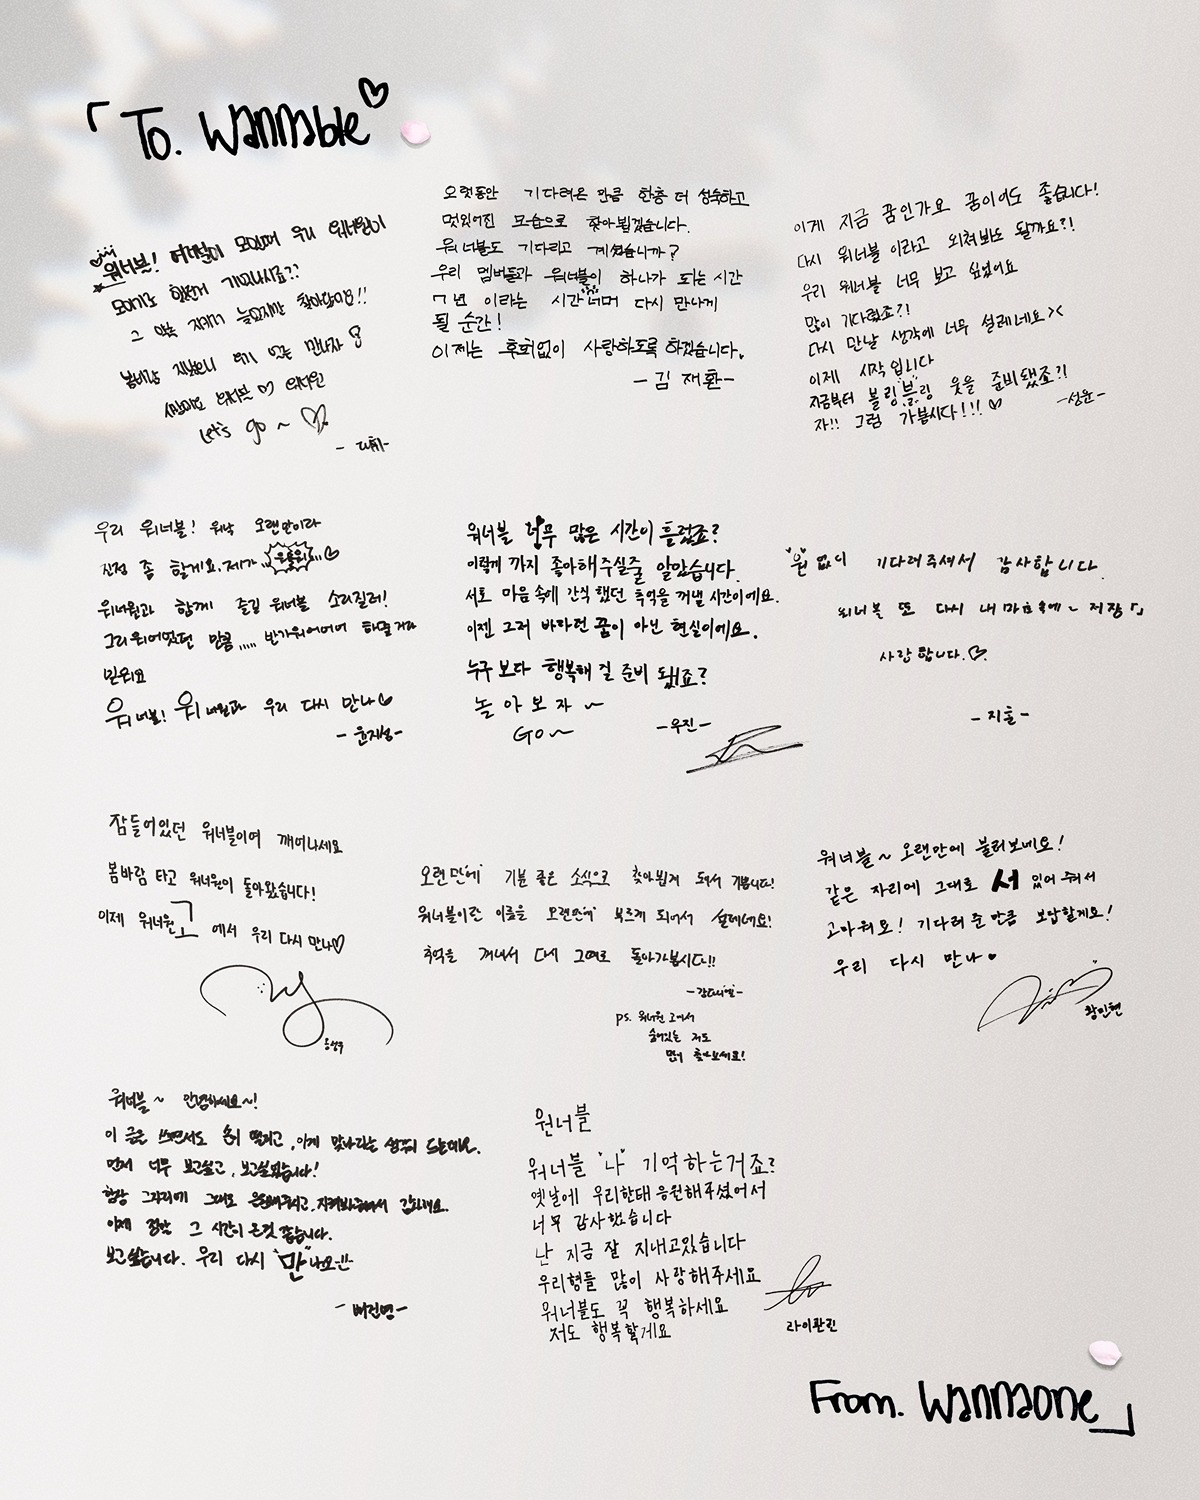 「To. Wannable♡
워너블! 여러분이 모일때 우리 워너원이
모이기로 했던거 기억나시죠??
그 약속 지키기 늦었지만 찾아왔어요!!
다시 만나자
사랑해요 워너블♡ 워너원
Let's go ~ ♡
-대휘-
오랫동안 기다려온 만큼 한층 더 성숙하고
멋있어진 모습으로 찾아뵙겠습니다.
워너블도 기다리고 계셨습니까?
우리 멤버들과 워너블이 하나가 되는 시간
7년 이라는 시간 너머 다시 만나게
될 순간!
이제는 후회없이 사랑하도록 하겠습니다.
-김재환-
이게 지금 꿈인가요 꿈이어도 좋습니다!
다시 워너블 이라고 외쳐봐도 될까요?!
우리 워너블 너무 보고 싶었어요
많이 기다렸죠?!
다시 만날 생각에 너무 설레네요><
이제 시작입니다
지금부터 블링블링 웃을 준비됐죠?!
자!! 그럼 가봅시다!!! ♡
-성운-
우리 워너블! 워낙 오랜만이라
진정 좀 할게요. 제가
워너원과 함께 즐길 워너블 소리질러!
그리워어었던 만큼,,,,, 반가워어어어 해줄거라
믿어요
워너블! 워너원과 우리 다시 만나♡
-윤지성-
워너블 너무 많은 시간이 흘렀죠?
이렇게 까지 좋아해주실줄 알았습니다.
서로 마음 속에 간직했던 추억을 꺼낼 시간이에요.
이젠 그저 바라던 꿈이 아닌 현실이에요.
누구보다 행복해 질 준비 됐죠?
놀아보자~
GO~
-우진-
"원" 없이 기다려주셔서 감사합니다.
워너블 또 다시 내 마음속에~ 저장「」
사랑합니다.♡
-지훈-
잠들어있던 워너블이여 깨어나세요
봄바람 타고 워너원이 돌아왔습니다!
이제 워너원고에서 우리 다시 만나♡
옹성우
오랜만에 기분 좋은 소식으로 찾아뵙게 되어서 기쁩니다!
워너블이란 이름을 오랜만에 부르게 되어서 설레네요!
추억을 꺼내서 다시 그때로 돌아가봅시다!!
-강다니엘-
ps. 워너원고에서
숨어있는 저도
먼저 찾아보세요!
워너블~ 오랜만에 불러보네요!
같은 자리에 그대로 서 있어 줘서
고마워요! 기다려준만큼 보답할게요!
우리 다시 만나♥
황민현
워너블~ 안녕하세요~!
이 글을 쓰면서도 손이 떨리고, 이게 맞나라는 생각이 드는데요.
먼저 너무 보고싶고, 보고싶었습니다!
항상 그자리에 그대로 응원해주시고, 지켜봐주셔서 감사해요.
이제 정말 그 시간이 온것 같습니다.
보고싶습니다. 우리 다시 "만"나요!!
-배진영-
워너블
워너블 "나" 기억하는거죠?
옛날에 우리한태 응원해주셨어서
너무 감사했습니다
난 지금 잘 지내고있습니다
우리형들 많이 사랑해주세요
워너블도 꼭 행복하세요
저도 행복할게요
라이관린
From. Wannaone」